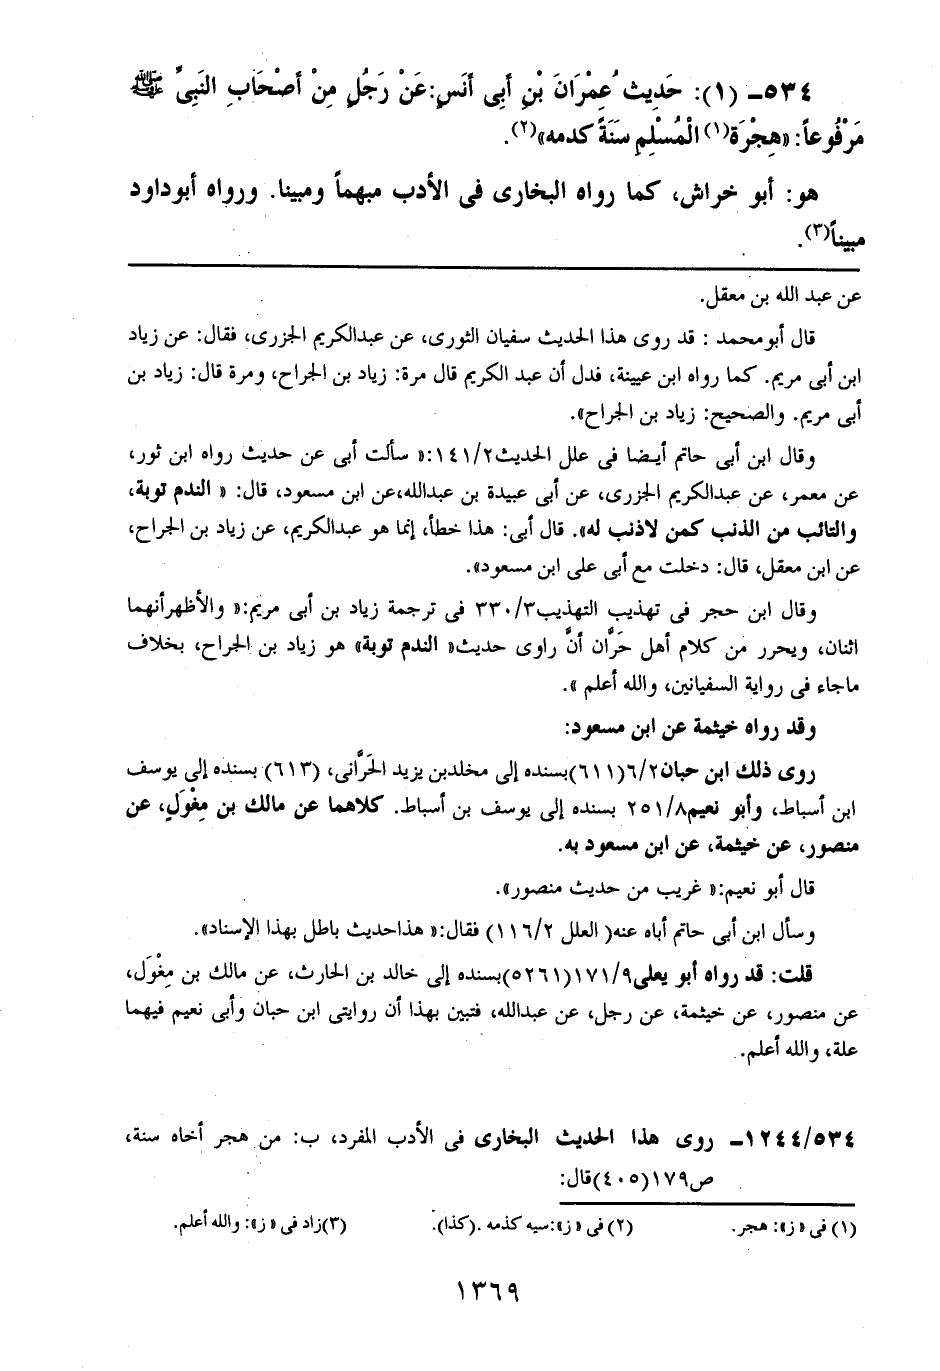 ٥٣٤ـ (١): حَدِيث عُمِمْرَانَ بْنِ أَبِى أَنَسٍ:عَنْ رَجُلٍ مِنْ أَصْحَابِ النَبِىِّ ﷺ
مَرْفُوعاً: «هِجْرَة(١) الْمُسْلِمِ سَنَةً كدمه»(٢).
هو: أبو خراش، كما رواه البخارى فى الأدب مبهماً ومبينا. ورواه أبوداود
مبيناً(٣).
عن عبد الله بن معقل.
قال أبومحمد : قد روى هذا الحديث سفيان الثورى، عن عبدالكريم الجزرى، فقال: عن زياد
ابن أبى مريم. كما رواه ابن عيينة، فدل أن عبد الكريم قال مرة: زياد بن الجراح، ومرة قال: زياد بن
أبى مريم. والصحيح: زياد بن الجراح».
وقال ابن أبى حاتم أيضا فى علل الحديث١٤١/٢:« سألت أبى عن حديث رواه ابن ثور،
عن معمر، عن عبدالكريم الجزرى، عن أبى عبيدة بن عبدالله،عن ابن مسعود، قال: « الندم توبة،
والتائب من الذنب كمن لاذنب له». قال أبى: هذا خطأ، إنما هو عبدالكريم، عن زياد بن الجراح،
عن ابن معقل، قال: دخلت مع أبى على ابن مسعود».
وقال ابن حجر فى تهذيب التهذيب٣٣٠/٣ فى ترجمة زياد بن أبى مريم:« والأظهرأنهما
اثنان، ويحرر من كلام أهل حَرَّان أنَّ راوى حديث« الندم توبة» هو زياد بن الجراح، بخلاف
ماجاء فى رواية السفيانين، والله أعلم ».
وقد رواه خيثمة عن ابن مسعود:
روى ذلك ابن حبان٦/٢(٦١١)بسنده إلى مخلدبن يزيد الحَرَّانى، (٦١٣) بسنده إلى يوسف
ابن أسباط، وأبو نعيم٢٥١/٨ بسنده إلى يوسف بن أسباط. كلاهما عن مالك بن مِغْوَلٍ، عن
منصور، عن خيثمة، عن ابن مسعود به.
قال أبو نعيم:« غريب من حديث منصور».
وسأل ابن أبى حاتم أباه عنه( العلل ١١٦/٢) فقال:« هذاحديث باطل بهذا الإسناد».
قلت: قد رواه أبو يعلى١٧١/٩(٥٢٦١)بسنده إلى خالد بن الحارث، عن مالك بن مِغْوَل،
عن منصور، عن خيثمة، عن رجل، عن عبدالله، فتبين بهذا أن روايتى ابن حبان وأبى نعيم فيهما
علة، والله أعلم.
١٢٤٤/٥٣٤ـ روى هذا الحديث البخارى فى الأدب المفرد، ب: من هجر أخاه سنة،
ص١٧٩(٤٠٥)قال:
(١) فى «ز»: هجر. (٢) فى «ز»:سيه كذمه .(كذا). (٣)زاد فى «ز»: والله أعلم.
١٣٦٩